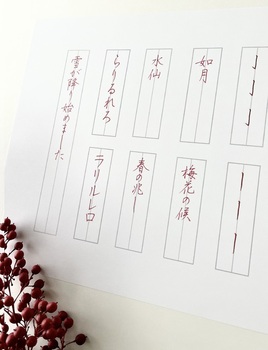 如月
梅花の候
水仙
春の兆し
らりるれろ
ラリルレロ
雪が降り始めました